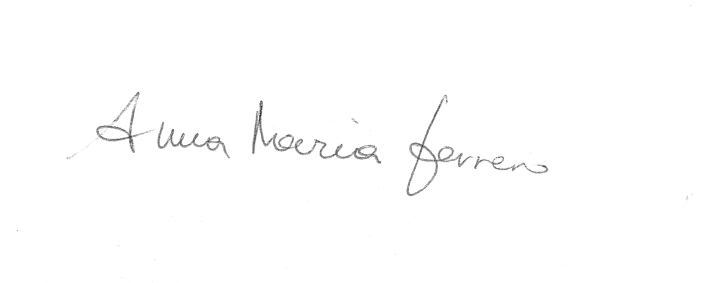 Anna Maria Ferrero